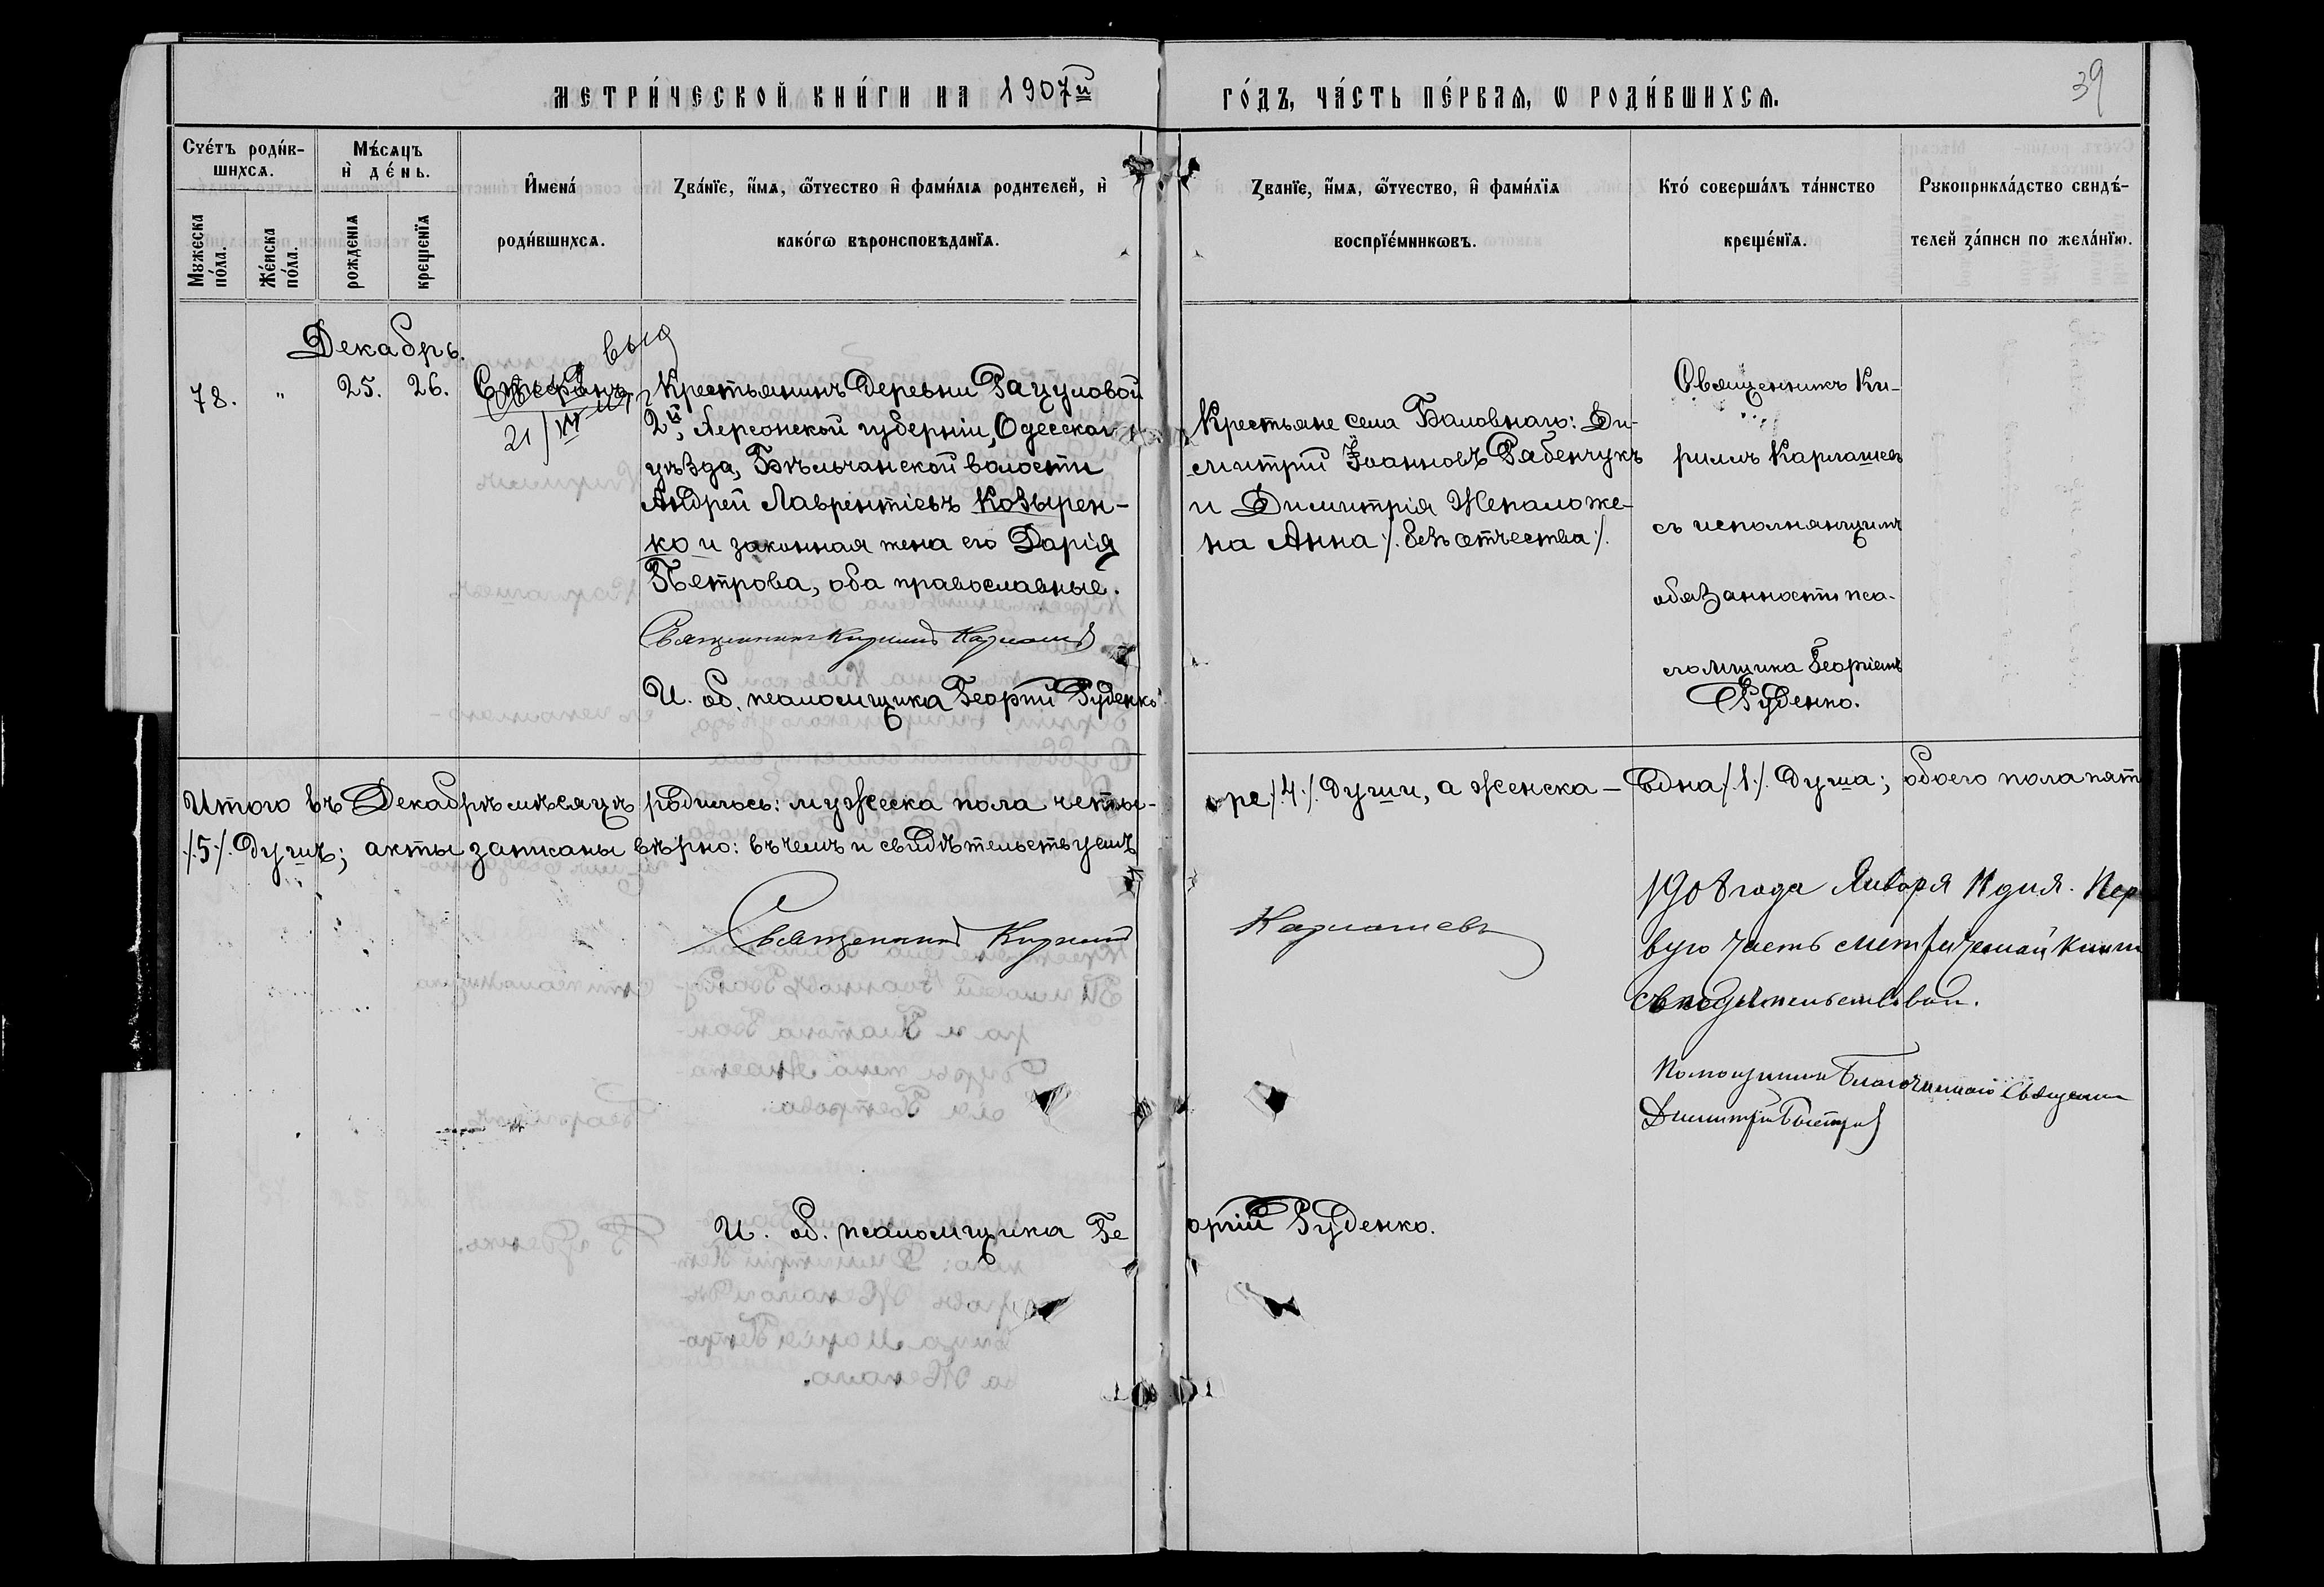 МЕТРИ́ЧЕСКОЙ КНИ́ГИ НА 1907й
ГО́ДЪ, ЧА́СТЬ ПЕ́РВАѦ, Ѡ РОДИ́ВШИХСѦ.
39
Сче́тъ роди́в-
шихсѧ.
Мѣ́сѧцъ
и҆ де́нь.
Мꙋжеска
по́ла.
Же́нска
по́ла.
рожденїѧ
крещенїѧ
И҆мена́
роди́вшихсѧ.
Зва́нїе, и҆́мѧ, ѻ҆́тчество и҆ фами́лїѧ родителей, и҆
како́гѡ вѣроисповѣданїѧ.
Званїе, и҆́мѧ, ѻ҆́тчество, и҆ фами́лїѧ
воспрїе́мникѡвъ.
Кто́ соверша́лъ та́инство
креще́нїѧ.
Рꙋкоприкла́дство свидѣ́-
телей за́писи по жела́нїю.
Декабрь.
78. " 25. 26. Стефанъ
выд
21/
Крестьянинъ деревни Рацуловой
2й, Херсонской губерніи, Одесскаго
уѣзда, Бѣльчанской волости
Андрей Лаврентіевъ Козырен-
ко и законная жена его Дарія
Петрова, оба православные.
Священникъ Кириллъ Карташевъ
И. об. псаломщика Георгій Руденко
Крестьяне села Баловнаго: Ди-
митрій Іоанновъ Рабенчукъ
и Димитрія Непаложе-
на Анна /. безъ отчества /.
Священникъ Ки-
риллъ Карташевъ
съ исполняющимъ
обязанности пса-
ломщика Георгіемъ
Руденко.
Итого въ Декабрѣ мѣсяцѣ родилось: мужеска пола четы-
ре /.4./ души, а женска – Една /.1./ душа; обоего пола пят
/.5./ душъ; акты записаны вѣрно: въ чемъ и свидѣтельствуемъ
Священникъ Кириллъ
Карташевъ
1908 года Января 11 дня. Пер
вую часть метрической книги
свидѣтельствовалъ.
Помощникъ Благочиннаго Священник
Димитрій Быстровъ
И. об. псаломщика Ге
оргій Руденко.